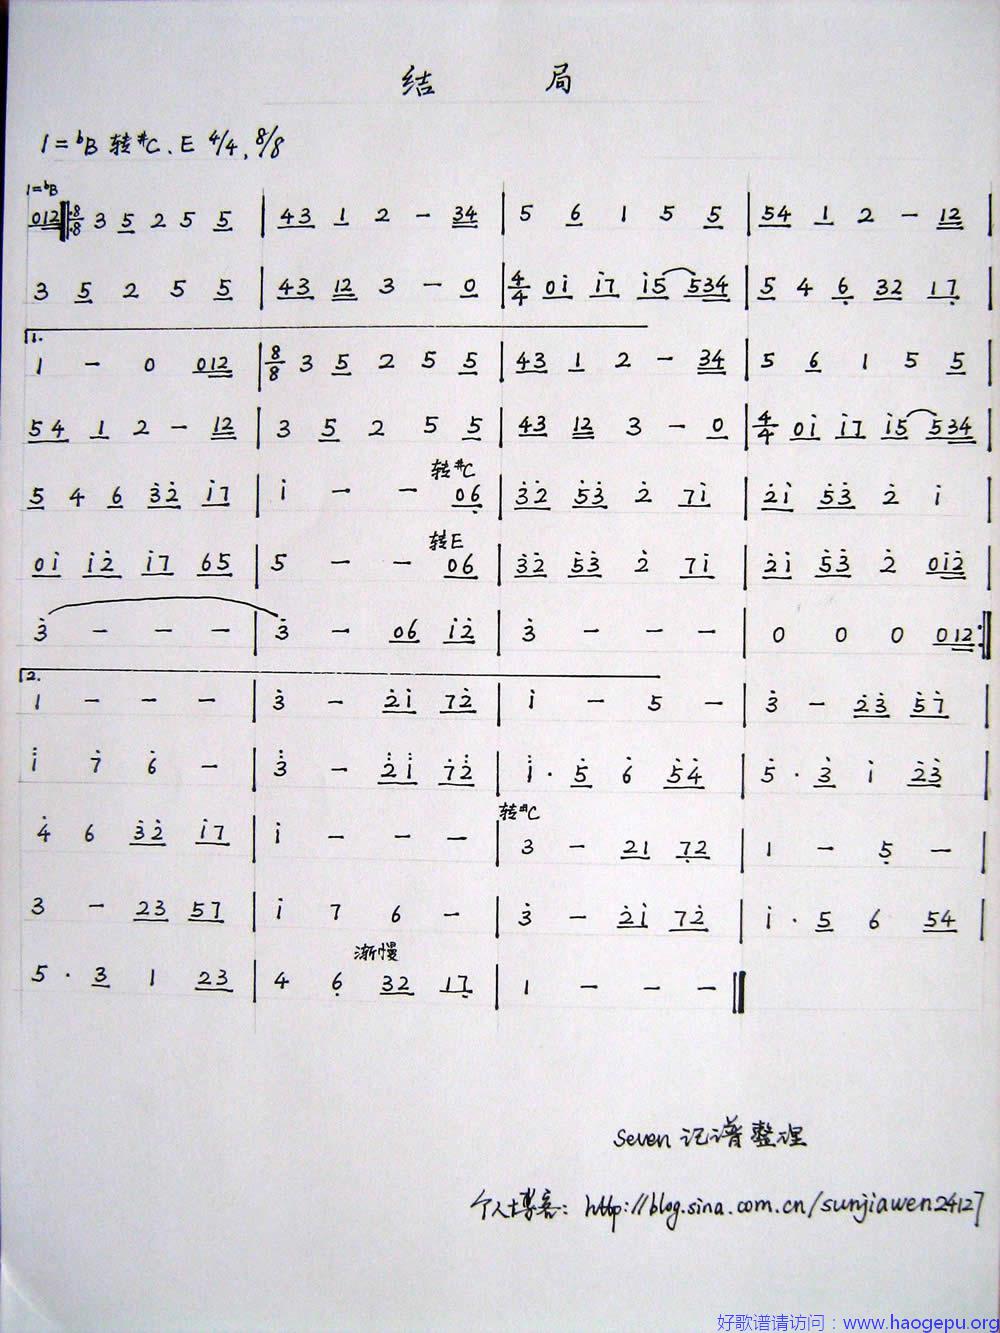 结 局
1=♭B 转#C、E 4/4, 8/8
1=♭B
012 8/8 3 5 2 5 5 | 43 1 2 - 34 | 5 6 1 5 5 | 54 1 2 - 12 |
3 5 2 5 5 | 43 12 3 - 0 | 4/4 0i i7 i5 534 | 5 4 6 32 17 |
1.
1 - 0 012 | 8/8 3 5 2 5 5 | 43 1 2 - 34 | 5 6 1 5 5 |
54 1 2 - 12 | 3 5 2 5 5 | 43 12 3 - 0 | 4/4 0i i7 i5 534 |
转#C
5 4 6 3̇2̇ i7 | i - - 06 | 3̇2̇ 5̇3̇ 2̇ 7i | 2̇i 5̇3̇ 2̇ i |
转E
0i i2̇ i7 65 | 5 - - 06 | 3̇2̇ 5̇3̇ 2̇ 7i | 2̇i 5̇3̇ 2̇ 0i2̇ |
3̇ - - - | 3̇ - 06 i2̇ | 3̇ - - - | 0 0 0 012 :‖
2.
1 - - - | 3̇ - 2̇i 72̇ | i - 5 - | 3̇ - 2̇3̇ 5̇7̇ |
i̇ 7̇ 6̇ - | 3̇ - 2̇i 7̇2̇ | i · 5̇ 6̇ 5̇4̇ | 5̇ · 3̇ i 2̇3̇ |
转#C
4̇ 6 3̇2̇ i7 | i - - - | 3 - 21 72 | 1 - 5 - |
3 - 23 57 | i 7 6 - | 3̇ - 2̇i 72̇ | i · 5 6 54 |
渐慢
5 · 3 1 23 | 4 6 32 17 | 1 - - - ‖
Seven 记谱整理
个人博客：http://blog.sina.com.cn/sunjiawen24127
好歌谱请访问：www.haogepu.org